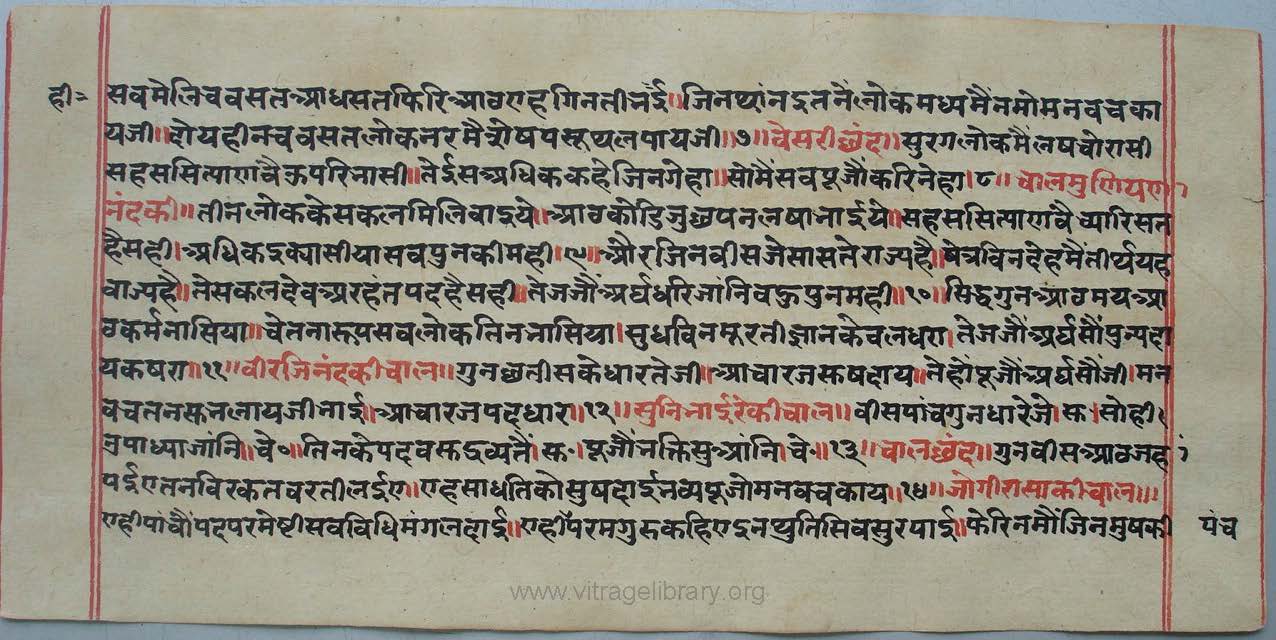 ही = सबमेलि चव सत आध सत फिरि आठ एह गिनती नई ॥ जिन थांन इतनें लोक मध्य मैं नमो मन वच का
य जी ॥ दोय हीन चव सत लोक नर मै सेष पस्तू थल पाय जी ॥७॥ वेसरी छंद ॥ सुरग लोक मैं लष चोरासी
सहस सित्याणवै ऊपरि नासी ॥ तेईस अधिक कहे जिन गेहा ॥ सो मैं सब पूजौं करि नेहा ।८॥ चाल मुणियण
नंद की ॥ तीन लोक के सकल मिलिवाइये । आठ कोडि जु छपन लषा नाईये ॥ सहस सित्याणवै च्यारि सत
है सही । अधिक इक्यासीया सब पुन की मही ॥९॥ और जिन वीस जे सासते राज्य है ॥ षेत्र विन देह मैं तीर्थ यह
वाज्य है ॥ ते सकल देव अरहंत पद है सही ॥ ते जजौं अर्घ धरि जांनि वऊ पुन मही ॥१०॥ सिद्ध गुन आठ मय आ
ठ कर्म नासिया ॥ चेतना रूप सब लोक तिन नासिया । सुध विन मूरती ज्ञान केवल धरा । ते जजौं अर्घ सौं पुन्य दा
यक षरा ॥११॥ वीर जिनंद की चाल ॥ गुन छतीस के धारते जी ॥ आचारज सुषदाय ॥ ने हों पूजौं अर्घ सौं जी । मन
वच तन लाय जी नाई । आचारज पद धार ॥१२॥ सुनि नाई रे की चाल ॥ वीस पांच गुन धारे जे । सु । सोही
उपाध्या जांनि ॥ चे० ॥ तिन के पद वसु द्रव्य तैं । सु । पूजौं नक्ति सु आंनि । चे ॥१३॥ चाल छंद ॥ गुन वीस आठ जह
पई ए तन विरकत वरती लई ए ॥ एह साध तिको सुषदाई नव्य पूजो मन वच काय ॥१४॥ जोगीरासा की चाल ॥
एही पांचौं पद परमेष्टी सब विधि मंगलदाई ॥ एही परम गुरु कहिए इन थुति सिव सुर पाई ॥ फेरि नमौं जिन मुष की पंच
www.vitragelibrary.org